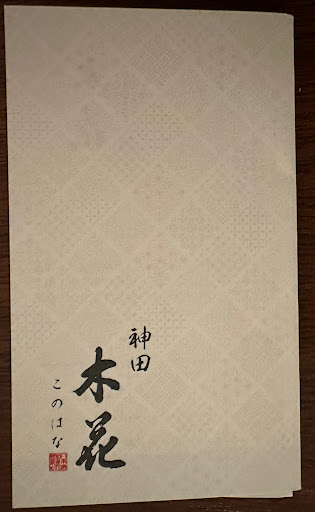 神田
木花
このはな